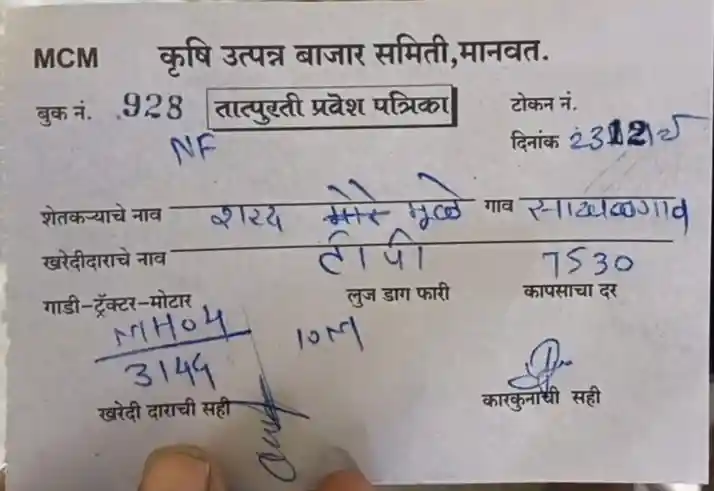 MCM कृषि उत्पन्न बाजार समिती,मानवत.
बुक नं. 928 तात्पुरती प्रवेश पत्रिका टोकन नं.
NF दिनांक 2312
शेतकऱ्याचे नाव शरद मोरे मुळे गाव
खरेदीदाराचे नाव टी पी 7530
गाडी-ट्रॅक्टर-मोटार लुज डाग फारी कापसाचा दर
MH04 10M
3144
खरेदी दाराची सही कारकुनाची सही